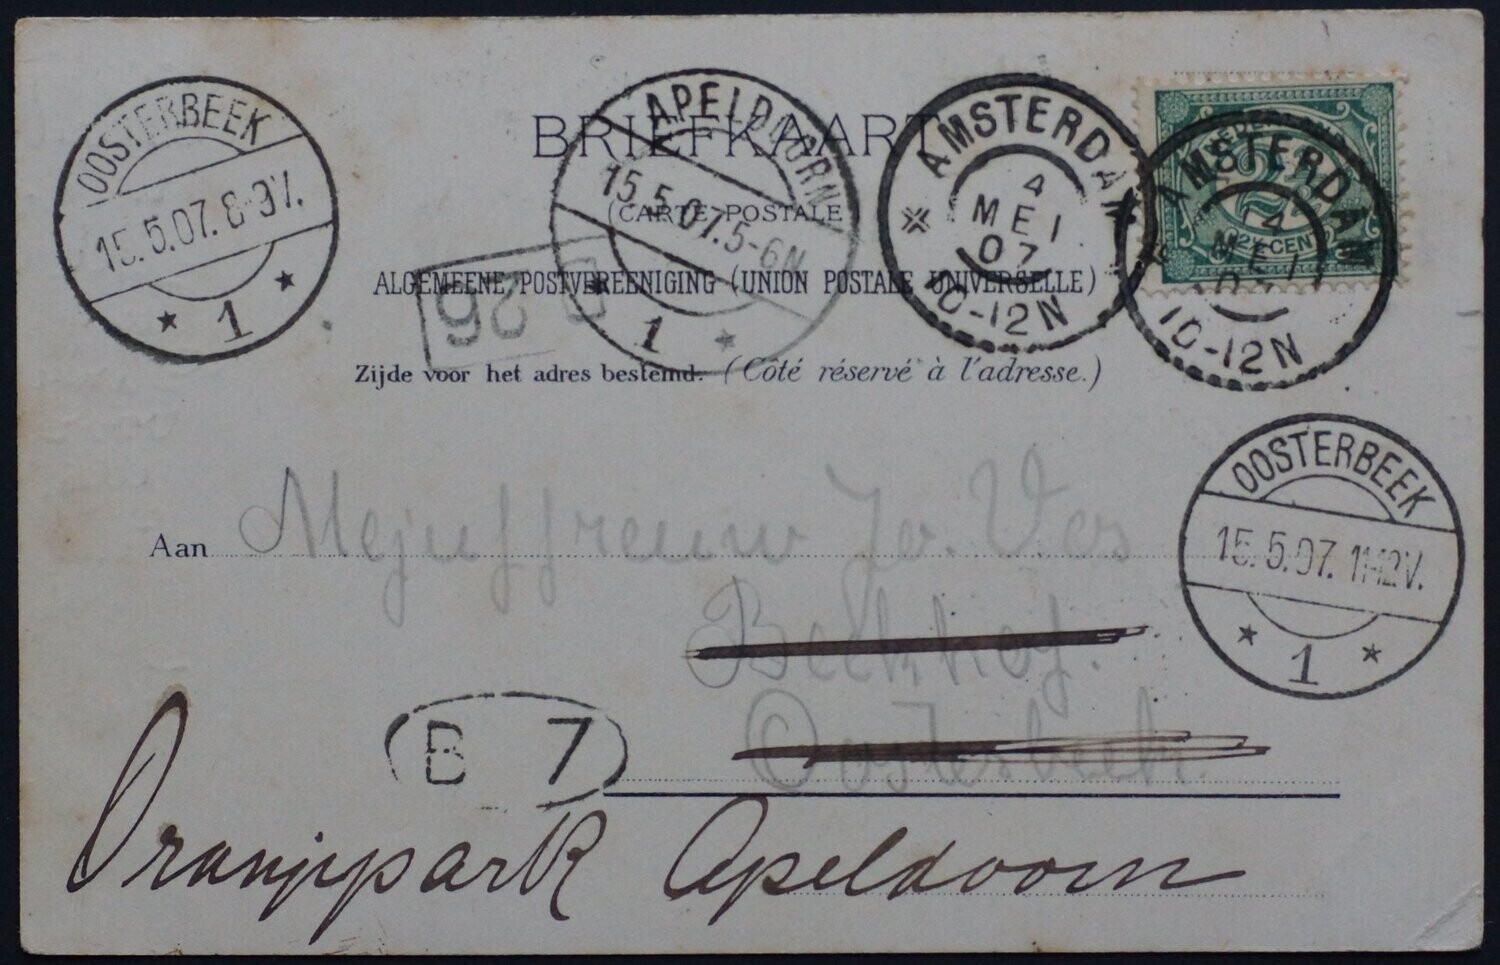 OOSTERBEEK
15.5.07. 8-9V.
1
BRIEFKAART
(CARTE POSTALE)
ALGEMEENE POSTVEREENIGING (UNION POSTALE UNIVERSELLE)
Zijde voor het adres bestemd. (Côté réservé à l'adresse.)
APELDOORN
15.5.07. 5-6N
1
26
AMSTERDAM
4
MEI
07
10-12N
AMSTERDAM
14
MEI
10-12N
2½ CENT
OOSTERBEEK
15.5.07. 11-12V.
1
Aan Mejuffreuw Jo. Vos
Beekhof.
Oosterbeek.
B 7
Oranjepark Apeldoorn